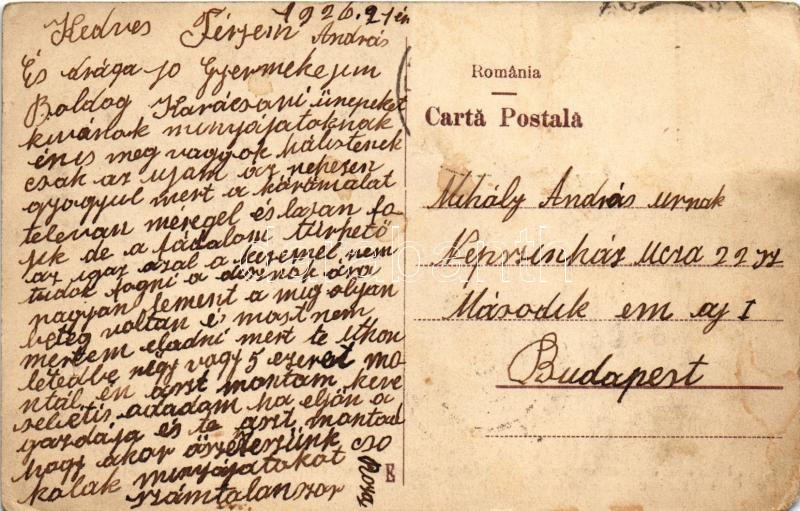 1926. 21 én
Kedves Férjem András
És drága jo Gyermekejim
Boldog Karácsoni ünepeket
kivánok minyájatoknak
én is meg vaggok hálistenek
csak az ujam az nehesen
gyogyul mert a körömalat
televan meregel és lasan fo
jik de a fádalom türhető
az igaz azal a kezemel nem
tudok fogni a disznok ára
nagyon lement a mig olyan
beteg voltan és most nem
mertem eladni mert te
letedbe négy vagy 5 ezeret mo
ntál én azt montam keve
sebétis adadam ha eljön a
gazdája és te azt montad
hogy akor öszeveszünk cso
kolak minyájatokat
számtalanszor
Roza
România
Cartă Postală
Mihály András urnak
Nepszinház Ucza 22 sz
Második em aj I
Budapest
E
darabanth